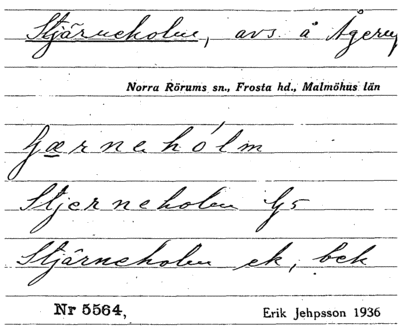 Stjärneholm, avs. å Ågerup
Norra Rörums sn., Frosta hd., Malmöhus län
Stjerneholm G5
Stjärneholm ek, bek
Nr 5564,
Erik Jehpsson 1936